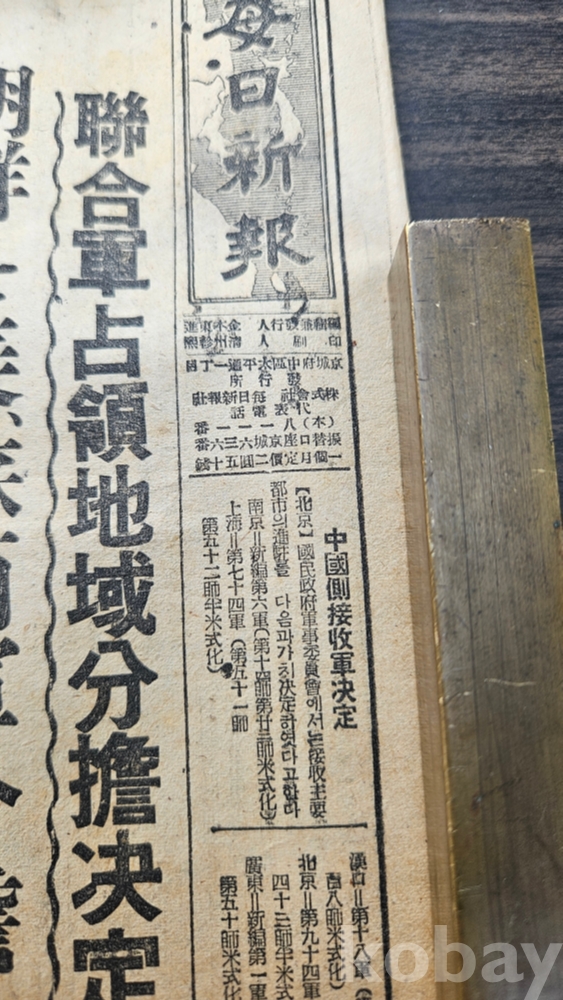 每日新報
京城府中區太平通一丁目
發行所
株式會社每日新報社
代表電話
(本)八一一一番
振替口座京城六三六番
一個月定價二圓五十錢
中國側接收軍決定
【北京】國民政府軍事委員會에서는接收主要
都市의進駐를 다음과가치決定하엿다고한다
南京=新編第六軍(第十四師第廿二師米式化)
上海=第七十四軍(第五十一師
第五十二師半米式化)
漢口=第十八軍(
百八師米式化)
北京=第九十四軍
四十三師半米式
廣東=新編第一軍
第五十師米式化
聯合軍占領地域分擔決定
朝鮮
kobay